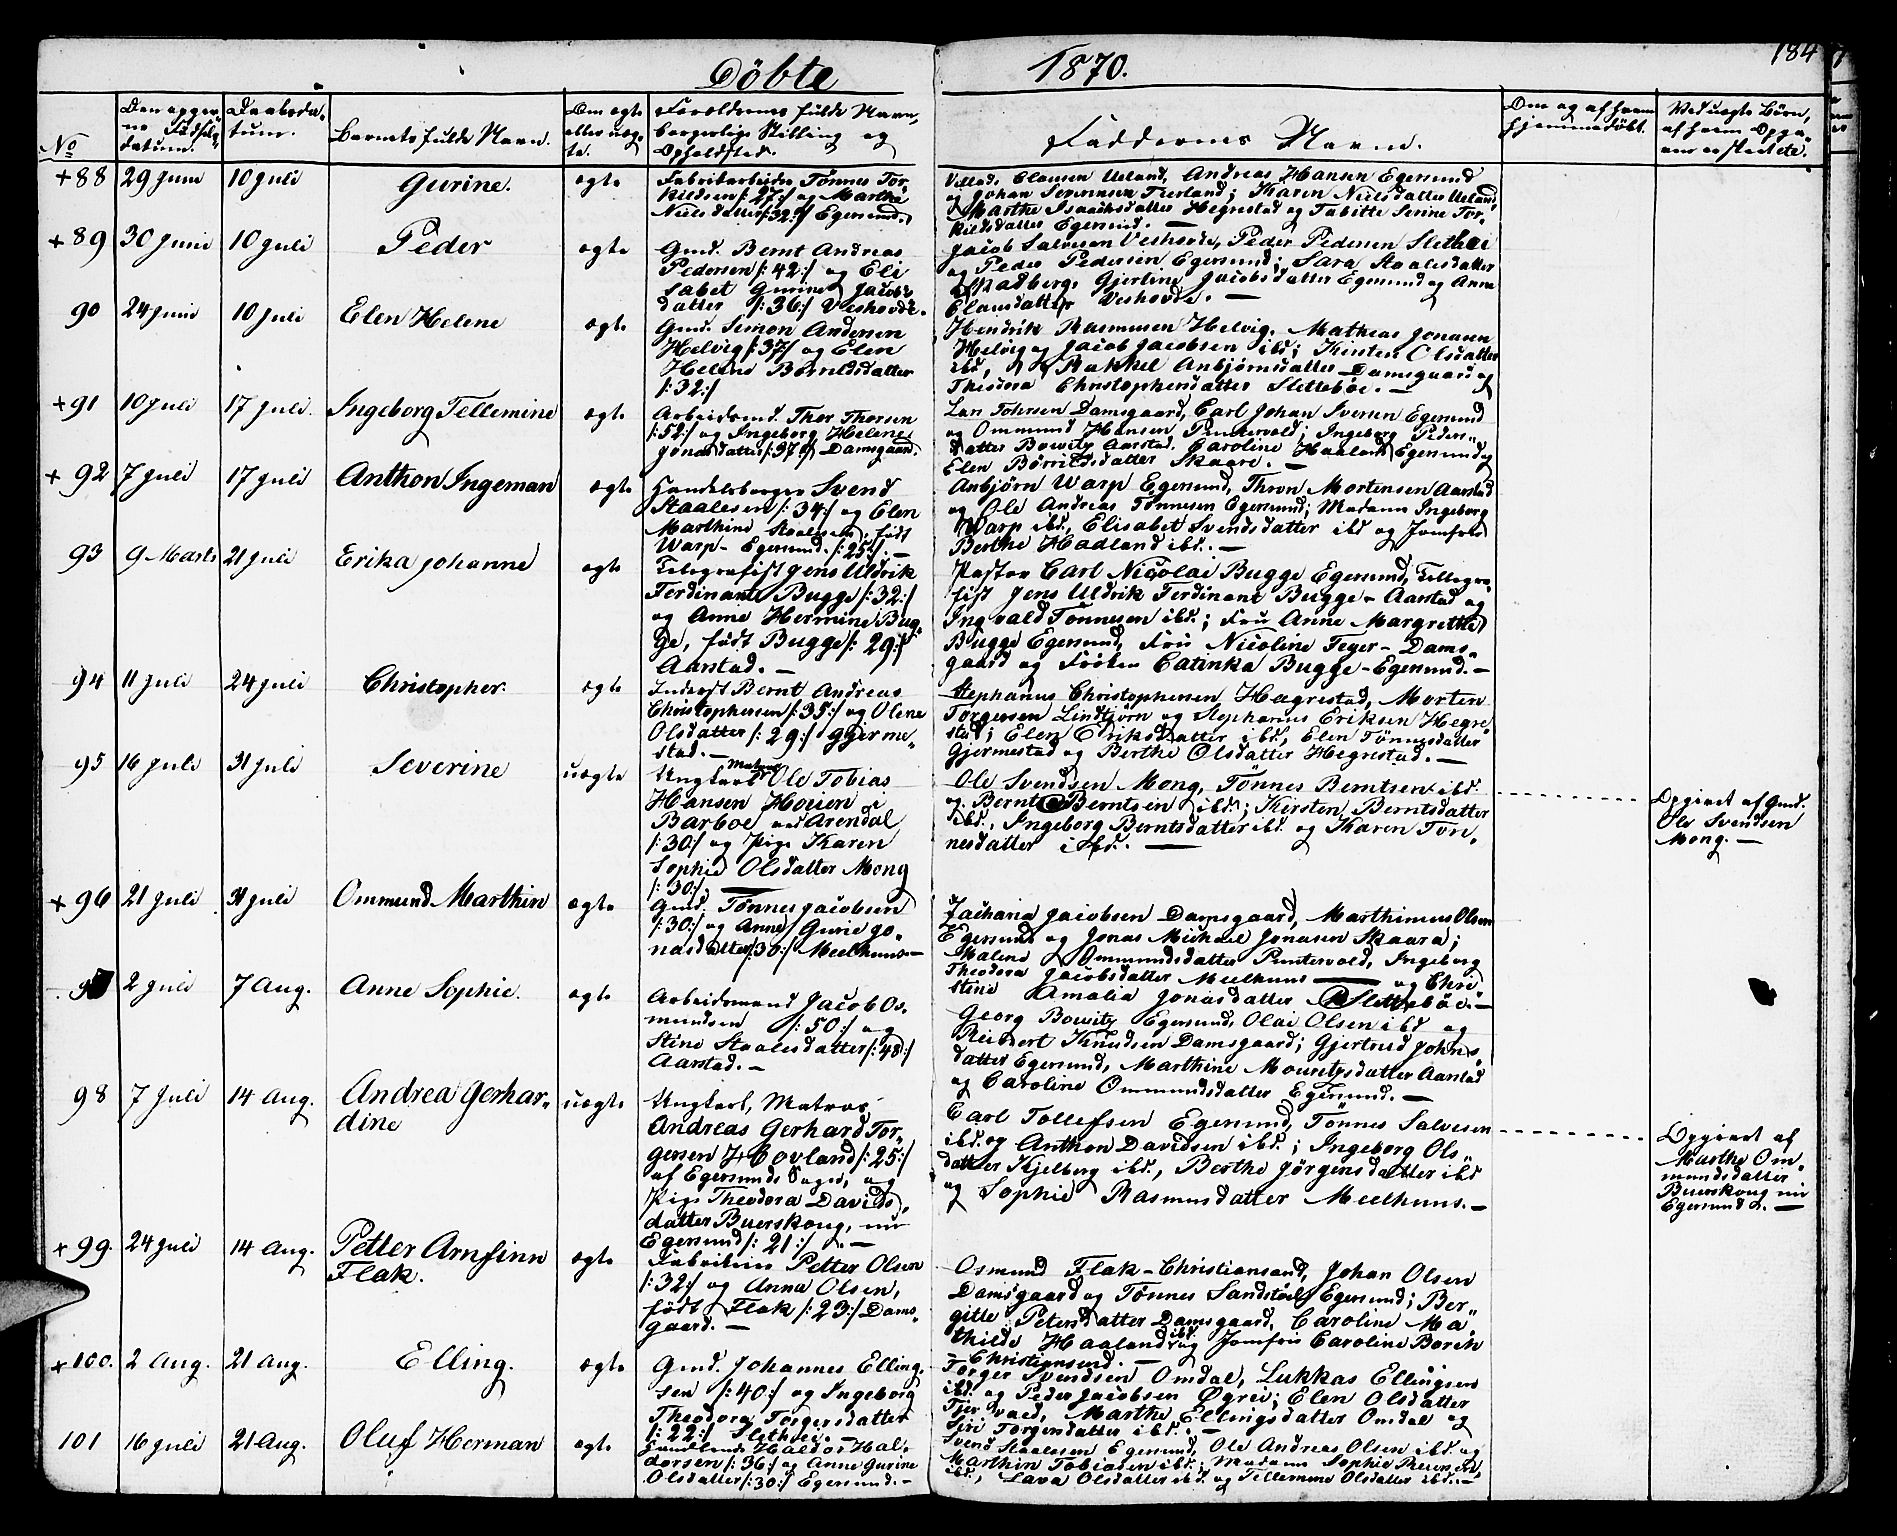 Döbte 1870. 184
No
Den opgivne Fødselsdatum.
Daabsdatum.
Barnets fulde Navn.
Om ægte eller uægte.
Forældrenes fulde Navn, borgerlige Stilling og Opholdsted.
Faddernes Navne.
Om og af hvem hjemmedöbt.
Ved uægte Börn, af hvem Opgaven er skeet etc.
+88 29 Juni 10 Juli Gurine. ægte
Fabrikarbeider Tönnes Tor-
kildsen /:27:/ og Marthe
Nielsdatter /:32:/ Egersund.
Villad Clausen Ueland, Andreas Hansen Egersund
og Johan Sörensen Tverland; Karen Nielsdatter Ueland,
Marthe Isaachsdatter Hegrestad og Tabitte Serine Tor-
kildsdatter Egersund. —
+89 30 Juni 10 Juli Peder ægte
Gmd. Bernt Andreas
Pedersen /:42:/ og Eli
sabet Gurine Jacobs
datter /:36:/ Veshovde.
Jacob Salvesen Veshovde, Peder Pedersen Slethei
og Peder Pedersen Egersund; Sara Staalesdatter
Madberg, Gjertine Jacobsdatter Egersund og Anne
Elausdatter Veshovde. —
90 24 Juni 10 Juli Elen Helene ægte
Gmd. Simon Andersen
Helvig /:37/ og Elen
Helene Börildsdatter
/:32:/
Hendrik Rasmusen Helvig, Mathias Jonasen
Helvig og Jacob Jacobsen ibd; Kirsten Olsdatter
ibd, Rakkel Anbjörnsdatter Damsgaard og
Theodora Christophersdatter Sletteböe. —
+91 10 Juli 17 Juli. Ingeborg Tellemine ægte
Arbeidsmd. Thor Thorsen
/:52:/ og Ingeborg Helene
Jonasdatter /:37:/ Damsgaard.
Lars Tohrsen Damsgaard, Carl Johan Iversen Egersund
og Ommund Hansen Puntervold; Ingeborg Peders-
datter Bowitz Aarstad, Caroline Haaland Egersund og
Elen Börrildsdatter Skaare. —
+ 92 7 Juli 17 Juli Anthon Ingeman ægte
Handelsborger Svend
Staalesen /:34:/ og Elen
Marthine Staalesen, født
Warp - Egersund. /:25:/. —
Anbjörn Warp Egersund, Thron Mortensen Aarstad
og Ole Andreas Tönnesen Egersund; Madam Ingeborg
Warp ibd., Elisabet Svendsdatter ibd og Jomfru
Berthe Hadland ibd. —
93 9 Marts 21 Juli Erika Johanne ægte
Telegrafist Jens Uldrik
Ferdinant Bugge /:32:/
og Anne Hermine Bug-
ge, født Bugge /:29:/
Aarstad. —
Pastor Carl Nicolai Bugge Egersund, Tellegra-
fist Jens Uldrik Ferdinant Bugge - Aarstad og
Ingvald Tönnesen ibd.; Fru Anne Margrethe
Bugge Egersund, Fru Nicoline Feyer - Dams-
gaard og Fröken Catinka Bugge - Egersund. —
94 11 Juli 24 Juli Christopher. ægte
Inderst Bernt Andreas
Christophersen /:35:/ og Olene
Olsdatter /:29:/ Gjerme-
stad. —
Stephanus Christophersen Hagrestad, Morten
Torgersen Lindtjörn og Stephanus Eriksen Hegre
stad; Elen Eriksdatter ibd, Elen Tönnesdatter
Gjermestad og Berthe Olsdatter Hegrestad. —
95 16 Juli 31 Juli Severine uægte
Ungkarl Matros Ole Tobias
Hansen Houen
Barboe ved Arendal
/:30:/ og Pige Karen
Sophie Olsdatter Mong
/:30:/ —
Ole Svendsen Mong, Tönnes Berntsen ibd.
og Bernt Berntsen ibd.; Kirsten Berntsdatter
ibd., Ingeborg Berntsdatter ibd. og Karen Tön-
nesdatter ibd. —
Opgivet af Gmd.
Ole Svendsen
Mong. —
+ 96 21 Juli 31 Juli Ommund Marthin ægte
Gmd. Tönnes Jacobsen
/:30:/ og Anne Gurie Jo-
nasdatter /:30:/ Meelhuus —
Zacharia Jacobsen Damsgaard, Marthinius Olsen
Egersund og Jonas Michael Jonasen Skaara;
Malene Ommundsdatter Puntervold, Ingeborg
Theodora Jacobsdatter Meelhuus — og Chri
stine Amalia Jonasdatter Sletteböe. —
97 2 Juli 7 Aug. Anne Sophie. ægte
Arbeidsmand Jacob Os-
mundsen /:50:/ og
Stine Staalesdatter /:48:/
Aarstad. —
Georg Bowitz Egersund, Olai Olsen ibd og
Reinert Knudsen Damsgaard; Gjertrud Johns-
datter Egersund, Marthine Mouritzdatter Aarstad
og Caroline Ommundsdatter Egersund. —
98 7 Juli 14 Aug. Andrea Gerhar-
dine uægte
Ungkarl, Matros
Andreas Gerhard Tor-
gersen Hovland /:25:/
af Egersunds Sogn, og
Pige Theodora Davids-
datter Buerskoug, nu
Egersund /:21:/. —
Carl Tollefsen Egersund, Tönnes Salvesen
ibd. og Anthon Davidsen ibd.; Ingeborg Ols-
datter Kjelberg ibd., Berthe Jörgensdatter ibd
og Sophie Rasmusdatter Meelhuus. —
Opgivet af
Marthe Om-
mundsdatter
Buerskoug nu
Egersund. —
+ 99. 24 Juli 14 Aug. Petter Arnfinn
Flak. ægte
Fabrikeier Petter Olsen
/:32:/ og Anna Olsen,
født Flak /:23:/ Dams-
gaard. —
Osmund Flak - Christiansand, Johan Olsen
Damsgaard og Tönnes Sandstöl Egersund; Ber-
gitte Petersdatter Damsgaard, Caroline Ma-
thilde Haaland ibd. og Jomfru Caroline Borch
- Christiansand. —
+100. 2 Aug. 21 Aug. Elling. ægte
Gmd. Johannes Elling-
sen /:40:/ og Ingeborg
Theodora Torgersdatter
/:22:/ Slethei. —
Torger Svendsen Omdal, Lukkas Ellingsen
ibd. og Peder Jacobsen Øgrei; Elen Olsdatter
Marthe Ellingsdatter Omdal og
Siri Torgersdatter ibd. —
101 16 Juli 21 Aug. Oluf Herman ægte
Handlende Haldor Hal-
dorsen /:36:/ og Anne Gurine
Olsdatter /:30:/ Egersund. —
Svend Staalesen Egersund, Ole Andreas Olsen ibd. og
Marthin Tobiasen ibd.; Madam Sophie Petersen
ibd., Lava Olsdatter ibd. og Tellemine Olsdatter ibd. —